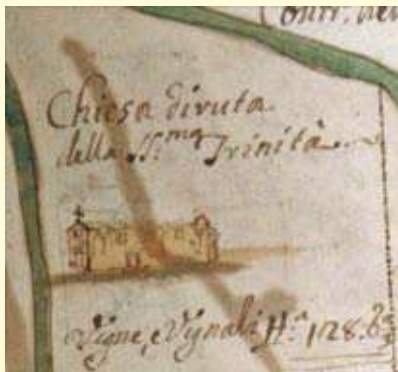 Contr.
Chiesa diruta
della SS.ma Trinità
Vigne, e Vignali H.a 128.